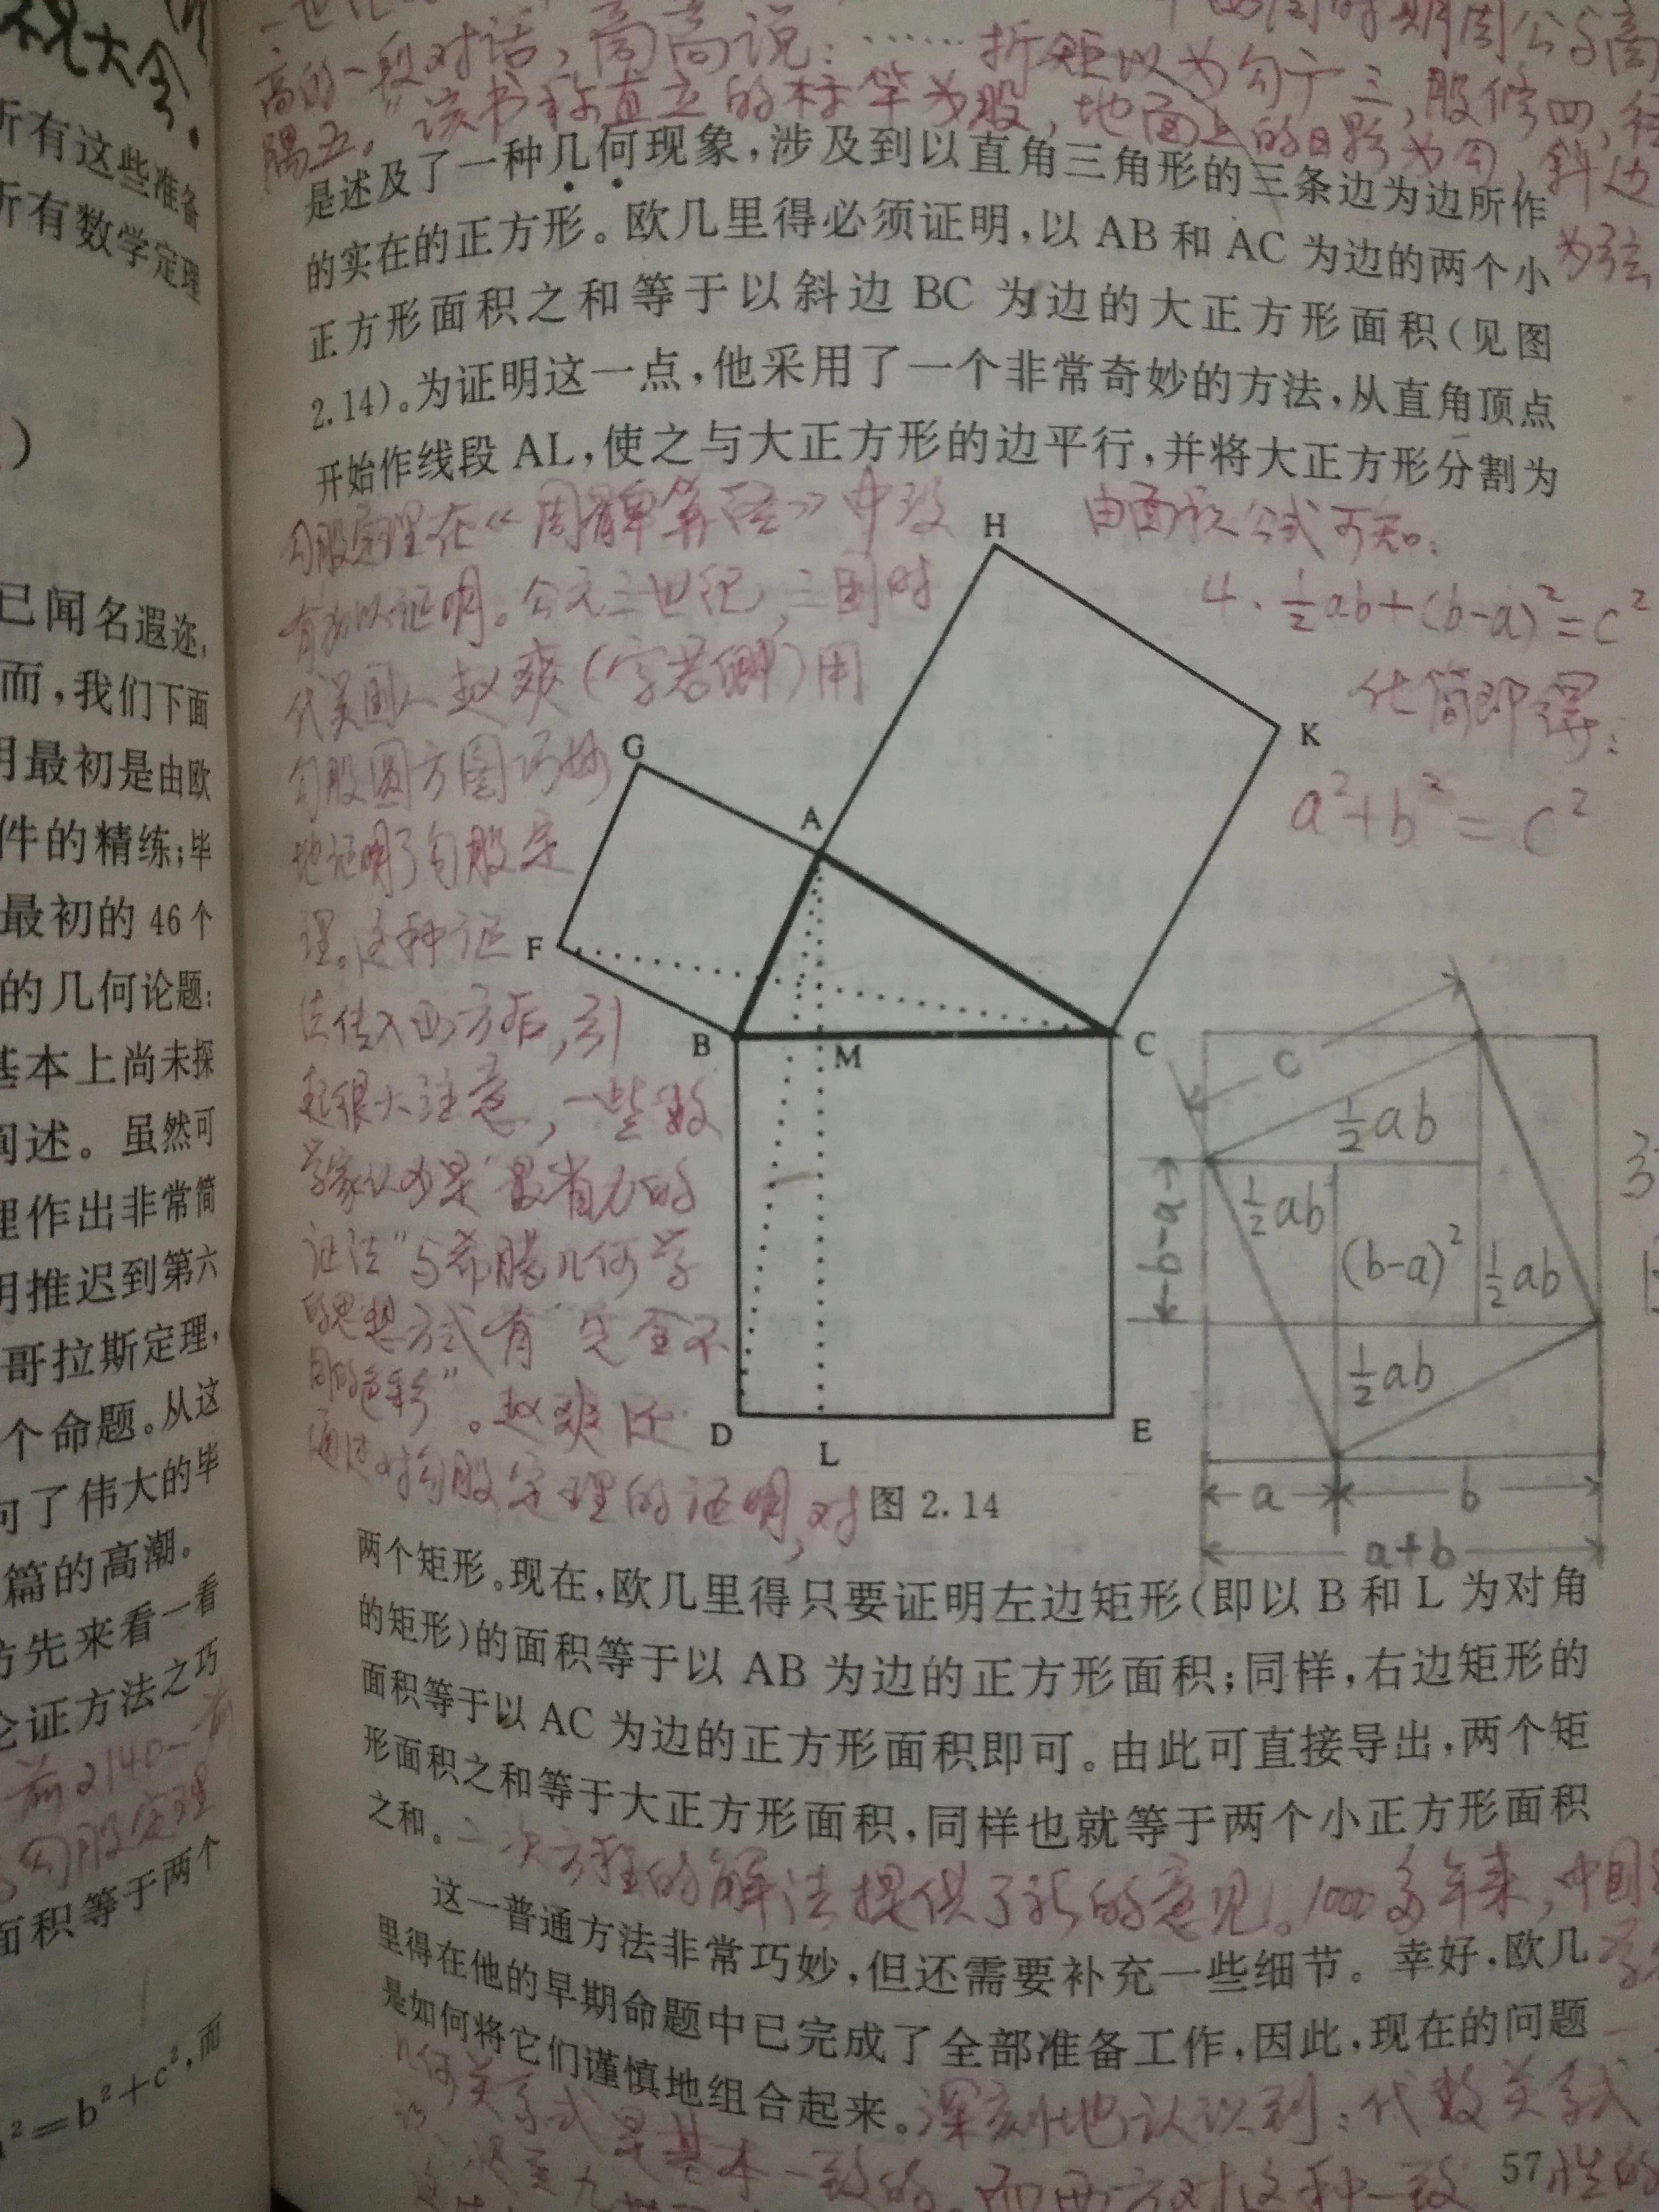 祝大会.
所有这些准备
所有数学定理
)
已闻名遐迩,
而,我们下面
明最初是由欧
件的精练;毕
最初的 46 个
的几何论题:
基本上尚未探
阐述。虽然可
理作出非常简
明推迟到第六
哥拉斯定理,
个命题。从这
向了伟大的毕
篇的高潮。
方先来看一看
论证方法之巧
前2140—前
勾股定理
面积等于两个
²=b²+c²,而
高的一段对话,商高说:……折矩以为勾广三,股修四,径
隅五。该书称直立的标竿为股,地面上的日影为勾,斜边
为弦
是述及了一种几何现象,涉及到以直角三角形的三条边为边所作
的实在的正方形。欧几里得必须证明,以 AB 和 AC 为边的两个小
正方形面积之和等于以斜边 BC 为边的大正方形面积(见图
2.14)。为证明这一点,他采用了一个非常奇妙的方法,从直角顶点
开始作线段 AL,使之与大正方形的边平行,并将大正方形分割为
勾股定理在《周髀算经》中没
有加以证明。公元三世纪,三国时
代吴国人赵爽(字君卿)用
勾股圆方图巧妙
地证明了勾股定
理。这种证
法传入西方后,引
起很大注意,一些数
学家认为是“最省力的
证法”与希腊几何学
的思想方式有“完全不
同的色彩”。赵爽还
通过对勾股定理的证明,对
由面积公式可知:
4·½ab+(b-a)²=c²
化简即得:
a²+b²=c²
H
K
G
A
F
B
M
C
D
L
E
c
½ab
½ab
(b-a)²
½ab
½ab
b-a
a
b
a+b
图 2.14
两个矩形。现在,欧几里得只要证明左边矩形(即以 B 和 L 为对角
的矩形)的面积等于以 AB 为边的正方形面积;同样,右边矩形的
面积等于以 AC 为边的正方形面积即可。由此可直接导出,两个矩
形面积之和等于大正方形面积,同样也就等于两个小正方形面积
之和。
二次方程的解法提供了新的意见。1000多年来,中国
这一普通方法非常巧妙,但还需要补充一些细节。幸好,欧几
里得在他的早期命题中已完成了全部准备工作,因此,现在的问题
是如何将它们谨慎地组合起来。
深刻地认识到:代数关系式
几何关系式是基本一致的。而西方对这种一致性的
57